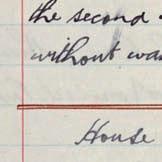 the second
without
House